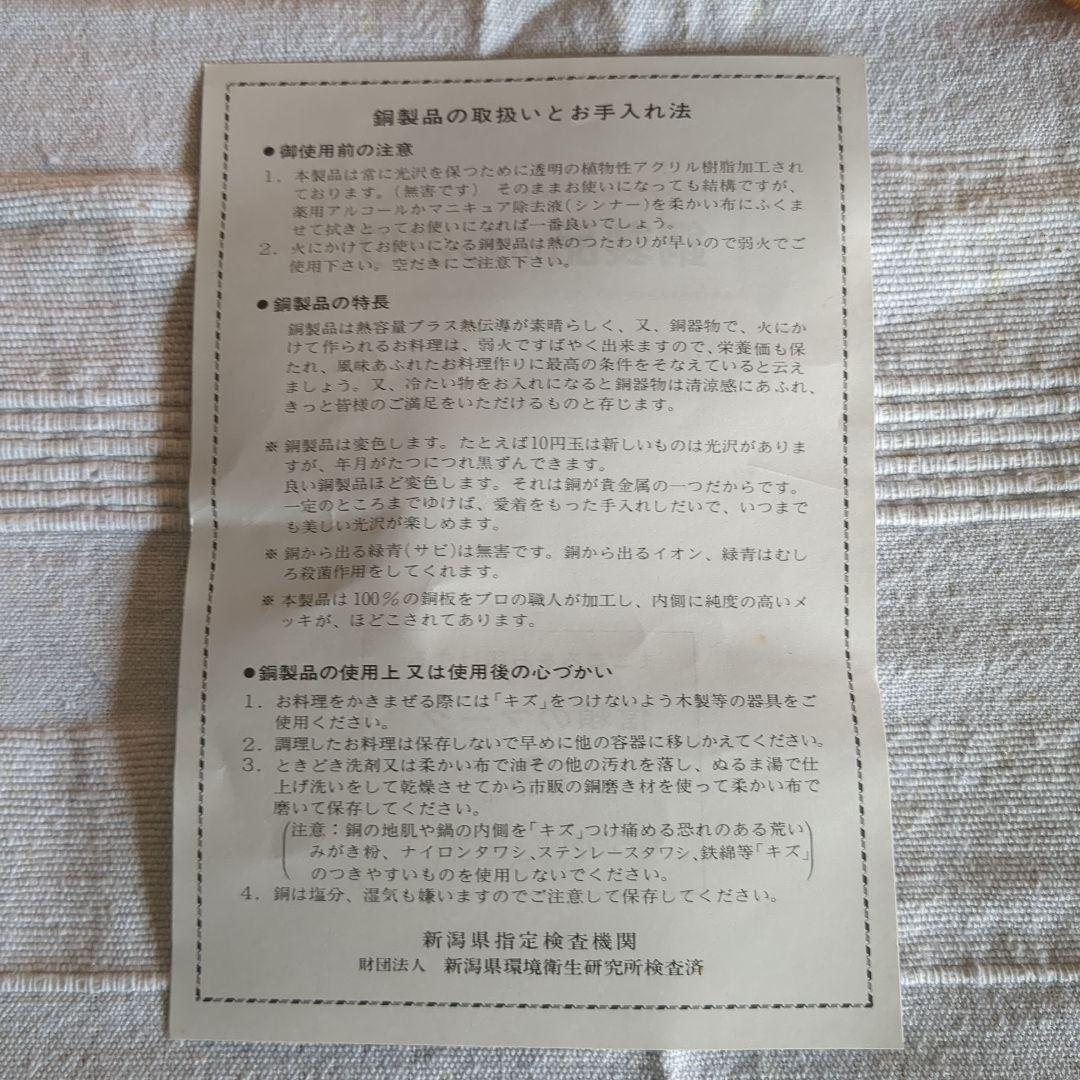 銅製品の取扱いとお手入れ法
●御使用前の注意
1．本製品は常に光沢を保つために透明の植物性アクリル樹脂加工され
ております。（無害です）　そのままお使いになっても結構ですが、
薬用アルコールかマニキュア除去液（シンナー）を柔かい布にふくま
せて拭きとってお使いになれば一番良いでしょう。
2．火にかけてお使いになる銅製品は熱のつたわりが早いので弱火でご
使用下さい。空だきにご注意下さい。
●銅製品の特長
銅製品は熱容量プラス熱伝導が素晴らしく、又、銅器物で、火にか
けて作られるお料理は、弱火ですばやく出来ますので、栄養価も保
たれ、風味あふれたお料理作りに最高の条件をそなえていると云え
ましょう。又、冷たい物をお入れになると銅器物は清涼感にあふれ、
きっと皆様のご満足をいただけるものと存じます。
※銅製品は変色します。たとえば10円玉は新しいものは光沢がありま
すが、年月がたつにつれ黒ずんできます。
良い銅製品ほど変色します。それは銅が貴金属の一つだからです。
一定のところまでゆけば、愛着をもった手入れしだいで、いつまで
も美しい光沢が楽しめます。
※銅から出る緑青（サビ）は無害です。銅から出るイオン、緑青はむし
ろ殺菌作用をしてくれます。
※本製品は100％の銅板をプロの職人が加工し、内側に純度の高いメ
ッキが、ほどこされてあります。
●銅製品の使用上又は使用後の心づかい
1．お料理をかきまぜる際には「キズ」をつけないよう木製等の器具をご
使用ください。
2．調理したお料理は保存しないで早めに他の容器に移しかえてください。
3．ときどき洗剤又は柔かい布で油その他の汚れを落し、ぬるま湯で仕
上げ洗いをして乾燥させてから市販の銅磨き材を使って柔かい布で
磨いて保存してください。
（注意：銅の地肌や鍋の内側を「キズ」つけ痛める恐れのある荒い
みがき粉、ナイロンタワシ、ステンレースタワシ、鉄綿等「キズ」
のつきやすいものを使用しないでください。）
4．銅は塩分、湿気も嫌いますのでご注意して保存してください。
新潟県指定検査機関
財団法人　新潟県環境衛生研究所検査済